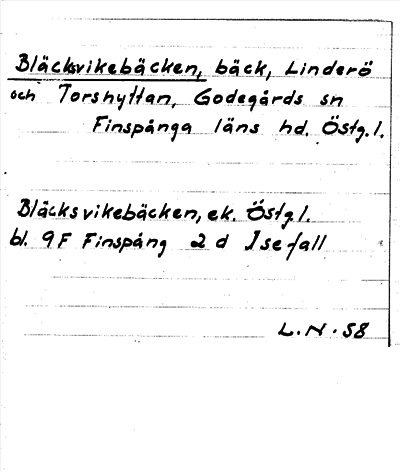 Bläcksvikebäcken, bäck, Linderö
och Torshyttan, Godegårds sn
Finspånga läns hd. Östg.l.
Bläcksvikebäcken, ek. Östg l.
bl. 9F Finspång 2 d Isefall
L.N.58